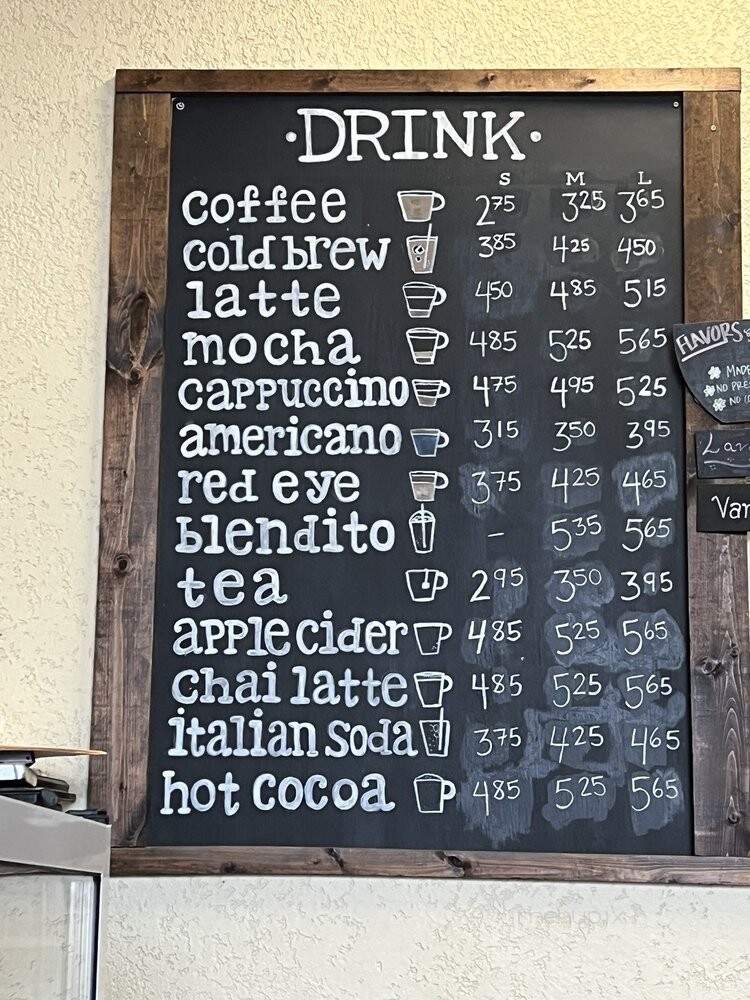 ·DRINK·
S M L
coffee 2.75 3.25 3.65
cold brew 3.85 4.25 4.50
latte 4.50 4.85 5.15
mocha 4.85 5.25 5.65
cappuccino 4.75 4.95 5.25
americano 3.15 3.50 3.95
red eye 3.75 4.25 4.65
blendito - 5.35 5.65
tea 2.95 3.50 3.95
apple cider 4.85 5.25 5.65
chai latte 4.85 5.25 5.65
italian soda 3.75 4.25 4.65
hot cocoa 4.85 5.25 5.65
FLAVORS
MADE
NO PRES
NO CO
Lar
Var